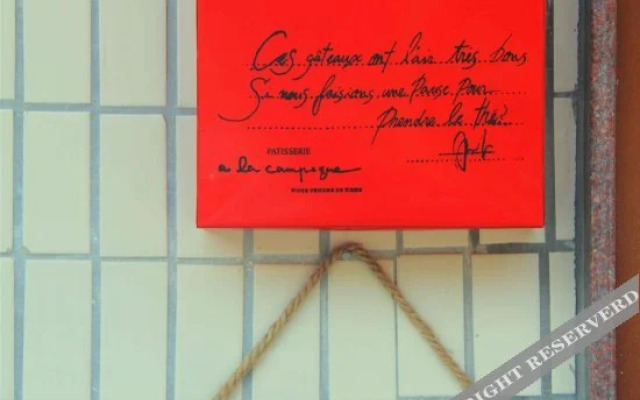 Ces gâteaux ont l'air très bons
Si nous faisions une Pause Pour
Prendre le thé?
PATISSERIE
a la campagne
RIGHT RESERVERD